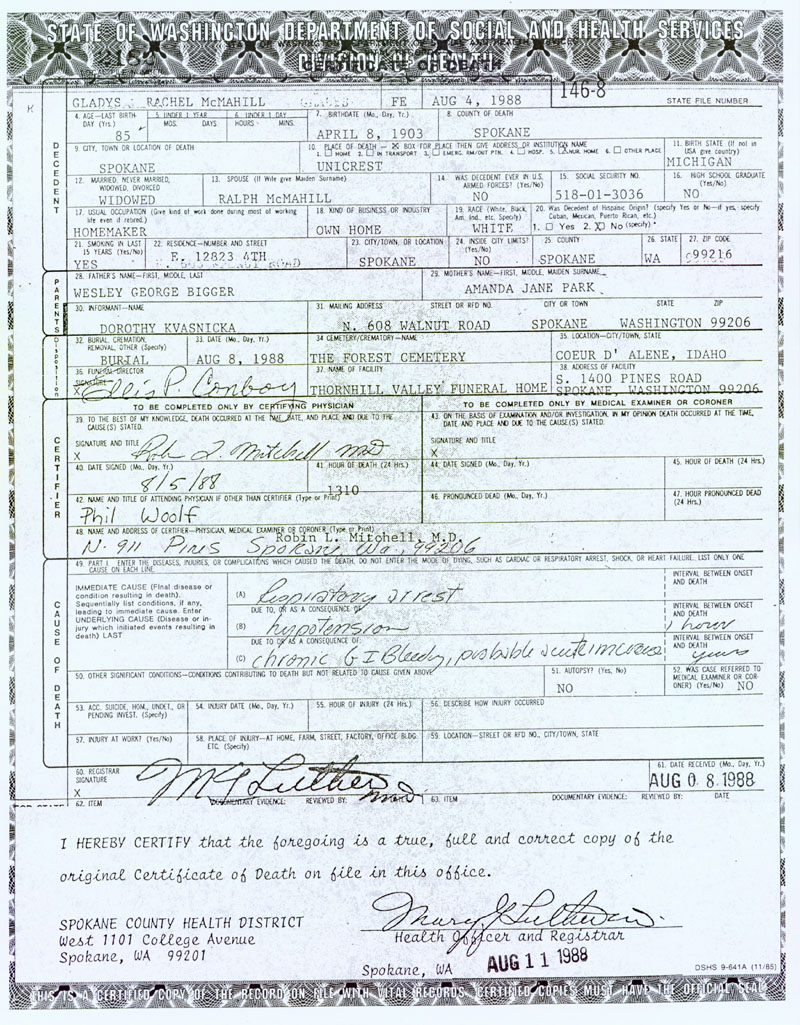 STATE OF WASHINGTON DEPARTMENT OF SOCIAL AND HEALTH SERVICES
DIVISION OF HEALTH
146-8
STATE FILE NUMBER
GLADYS RACHEL McMAHILL FE AUG 4, 1988
4. AGE—LAST BIRTHDAY (Yrs.) 85
5. UNDER 1 YEAR MOS. DAYS
6. UNDER 1 DAY HOURS MINS.
7. BIRTHDATE (Mo., Day, Yr.) APRIL 8, 1903
8. COUNTY OF DEATH SPOKANE
9. CITY, TOWN OR LOCATION OF DEATH SPOKANE
10. PLACE OF DEATH — X BOX FOR PLACE THEN GIVE ADDRESS OR INSTITUTION NAME
1. HOME 2. IN TRANSPORT 3. EMERG. RM/OUT PTN. 4. HOSP. 5. X NUR. HOME 6. OTHER PLACE
UNICREST
11. BIRTH STATE (If not in USA give country) MICHIGAN
12. MARRIED, NEVER MARRIED, WIDOWED, DIVORCED WIDOWED
13. SPOUSE (If Wife give Maiden Surname) RALPH McMAHILL
14. WAS DECEDENT EVER IN U.S. ARMED FORCES? (Yes/No) NO
15. SOCIAL SECURITY NO. 518-01-3036
16. HIGH SCHOOL GRADUATE (Yes/No) NO
17. USUAL OCCUPATION (Give kind of work done during most of working life even if retired.) HOMEMAKER
18. KIND OF BUSINESS OR INDUSTRY OWN HOME
19. RACE (White, Black, Am. Ind., etc. Specify) WHITE
20. Was Decedent of Hispanic Origin? (specify Yes or No—if yes, specify Cuban, Mexican, Puerto Rican, etc.) 1. Yes 2. X No (specify)
21. SMOKING IN LAST 15 YEARS (Yes/No) YES
22. RESIDENCE—NUMBER AND STREET E. 12823 4TH
23. CITY/TOWN, OR LOCATION SPOKANE
24. INSIDE CITY LIMITS? (Yes/No) NO
25. COUNTY SPOKANE
26. STATE WA
27. ZIP CODE 99216
28. FATHER'S NAME—FIRST, MIDDLE, LAST WESLEY GEORGE BIGGER
29. MOTHER'S NAME—FIRST, MIDDLE, MAIDEN SURNAME AMANDA JANE PARK
30. INFORMANT—NAME DOROTHY KVASNICKA
31. MAILING ADDRESS STREET OR RFD NO. CITY OR TOWN STATE ZIP
N. 608 WALNUT ROAD SPOKANE WASHINGTON 99206
32. BURIAL, CREMATION, REMOVAL, OTHER (Specify) BURIAL
33. DATE (Mo., Day, Yr.) AUG 8, 1988
34. CEMETERY/CREMATORY—NAME THE FOREST CEMETERY
35. LOCATION—CITY/TOWN, STATE COEUR D' ALENE, IDAHO
36. FUNERAL DIRECTOR SIGNATURE X Ellis P. Conboy
37. NAME OF FACILITY THORNHILL VALLEY FUNERAL HOME
38. ADDRESS OF FACILITY S. 1400 PINES ROAD
SPOKANE, WASHINGTON 99206
TO BE COMPLETED ONLY BY CERTIFYING PHYSICIAN
39. TO THE BEST OF MY KNOWLEDGE, DEATH OCCURRED AT THE TIME, DATE, AND PLACE AND DUE TO THE CAUSE(S) STATED.
SIGNATURE AND TITLE
X Robin L. Mitchell MD
40. DATE SIGNED (Mo., Day, Yr.) 8/5/88
41. HOUR OF DEATH (24 Hrs.) 1310
42. NAME AND TITLE OF ATTENDING PHYSICIAN IF OTHER THAN CERTIFIER (Type or Print)
Phil Woolf
TO BE COMPLETED ONLY BY MEDICAL EXAMINER OR CORONER
43. ON THE BASIS OF EXAMINATION AND/OR INVESTIGATION, IN MY OPINION DEATH OCCURRED AT THE TIME, DATE AND PLACE AND DUE TO THE CAUSE(S) STATED.
SIGNATURE AND TITLE
X
44. DATE SIGNED (Mo., Day, Yr.)
45. HOUR OF DEATH (24 Hrs.)
46. PRONOUNCED DEAD (Mo., Day, Yr.)
47. HOUR PRONOUNCED DEAD (24 Hrs.)
48. NAME AND ADDRESS OF CERTIFIER—PHYSICIAN, MEDICAL EXAMINER OR CORONER (Type or Print)
Robin L. Mitchell, M.D.
N. 911 Pines Spokane, Wa., 99206
49. PART I. ENTER THE DISEASES, INJURIES, OR COMPLICATIONS WHICH CAUSED THE DEATH. DO NOT ENTER THE MODE OF DYING, SUCH AS CARDIAC OR RESPIRATORY ARREST, SHOCK, OR HEART FAILURE. LIST ONLY ONE CAUSE ON EACH LINE.
IMMEDIATE CAUSE (Final disease or condition resulting in death). Sequentially list conditions, if any, leading to immediate cause. Enter UNDERLYING CAUSE (Disease or injury which initiated events resulting in death) LAST
(A) Respiratory arrest
INTERVAL BETWEEN ONSET AND DEATH
DUE TO, OR AS A CONSEQUENCE OF:
(B) hypotension
INTERVAL BETWEEN ONSET AND DEATH
1 hour
DUE TO, OR AS A CONSEQUENCE OF:
(C) chronic GI Bleed, probable acute increase
INTERVAL BETWEEN ONSET AND DEATH
years
50. OTHER SIGNIFICANT CONDITIONS—CONDITIONS CONTRIBUTING TO DEATH BUT NOT RELATED TO CAUSE GIVEN ABOVE
51. AUTOPSY? (Yes, No) NO
52. WAS CASE REFERRED TO MEDICAL EXAMINER OR CORONER? (Yes/No) NO
53. ACC. SUICIDE, HOM., UNDET., OR PENDING INVEST. (Specify)
54. INJURY DATE (Mo., Day, Yr.)
55. HOUR OF INJURY (24 Hrs.)
56. DESCRIBE HOW INJURY OCCURRED
57. INJURY AT WORK? (Yes/No)
58. PLACE OF INJURY—AT HOME, FARM, STREET, FACTORY, OFFICE BLDG. ETC. (Specify)
59. LOCATION—STREET OR RFD NO., CITY/TOWN, STATE
60. REGISTRAR SIGNATURE
X
61. DATE RECEIVED (Mo., Day, Yr.)
AUG 08 1988
62. ITEM DOCUMENTARY EVIDENCE: REVIEWED BY:
63. ITEM DOCUMENTARY EVIDENCE: REVIEWED BY: DATE
DECEDENT
PARENTS
Disposition
CERTIFIER
CAUSE OF DEATH
I HEREBY CERTIFY that the foregoing is a true, full and correct copy of the
original Certificate of Death on file in this office.
SPOKANE COUNTY HEALTH DISTRICT
West 1101 College Avenue
Spokane, WA 99201
Health Officer and Registrar
Spokane, WA AUG 11 1988
DSHS 9-641A (11/85)
THIS IS A CERTIFIED COPY OF THE RECORD ON FILE WITH VITAL RECORDS. CERTIFIED COPIES MUST HAVE THE OFFICIAL SEAL